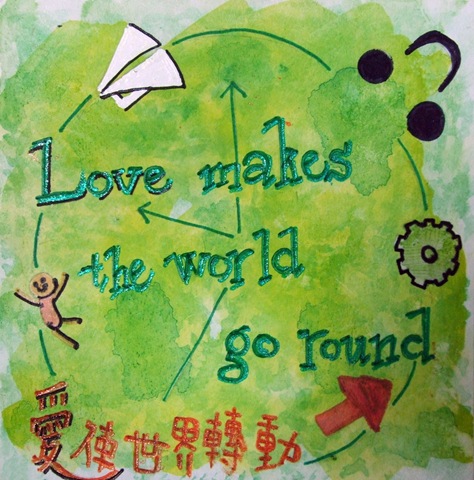 Love makes
the world
go round
愛使世界轉動